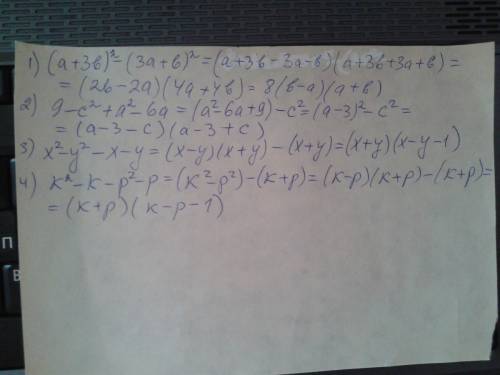 1) (a+3b)²-(3a+b)²=(a+3b-3a-b)(a+3b+3a+b)=
=(2b-2a)(4a+4b)=8(b-a)(a+b)
2) 9-c²+a²-6a=(a²-6a+9)-c²=(a-3)²-c²=
=(a-3-c)(a-3+c)
3) x²-y²-x-y=(x-y)(x+y)-(x+y)=(x+y)(x-y-1)
4) k²-k-p²-p=(k²-p²)-(k+p)=(k-p)(k+p)-(k+p)=
=(k+p)(k-p-1)
П